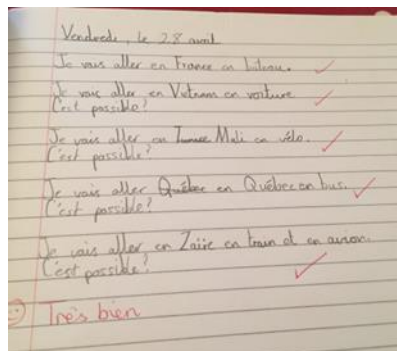 Vendredi, le 28 avril
Je vais aller en France en bateau.
Je vais aller en Vietnam en voiture
C'est possible?
Je vais aller en Mali en vélo.
C'est possible?
Je vais aller Québec en Québec en bus.
C'est possible?
Je vais aller en Zaïre en train et en avion.
C'est possible?
Très bien